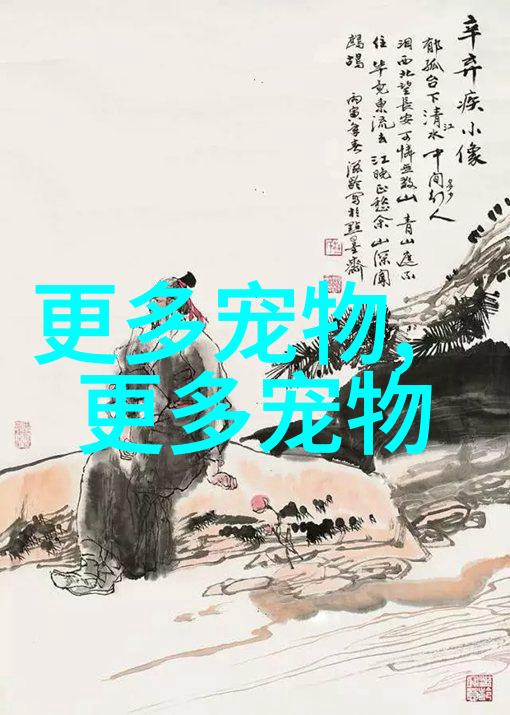 辛弃疾小像
郁孤台下清江水 中间多少行人
泪西北望長安可憐無数山 青山遮不
住毕竟東流去 江晚正愁余 山深闻
鹧鸪 丙寅年春 滋龄写於點墨齋
更多宠物,
更多宠物